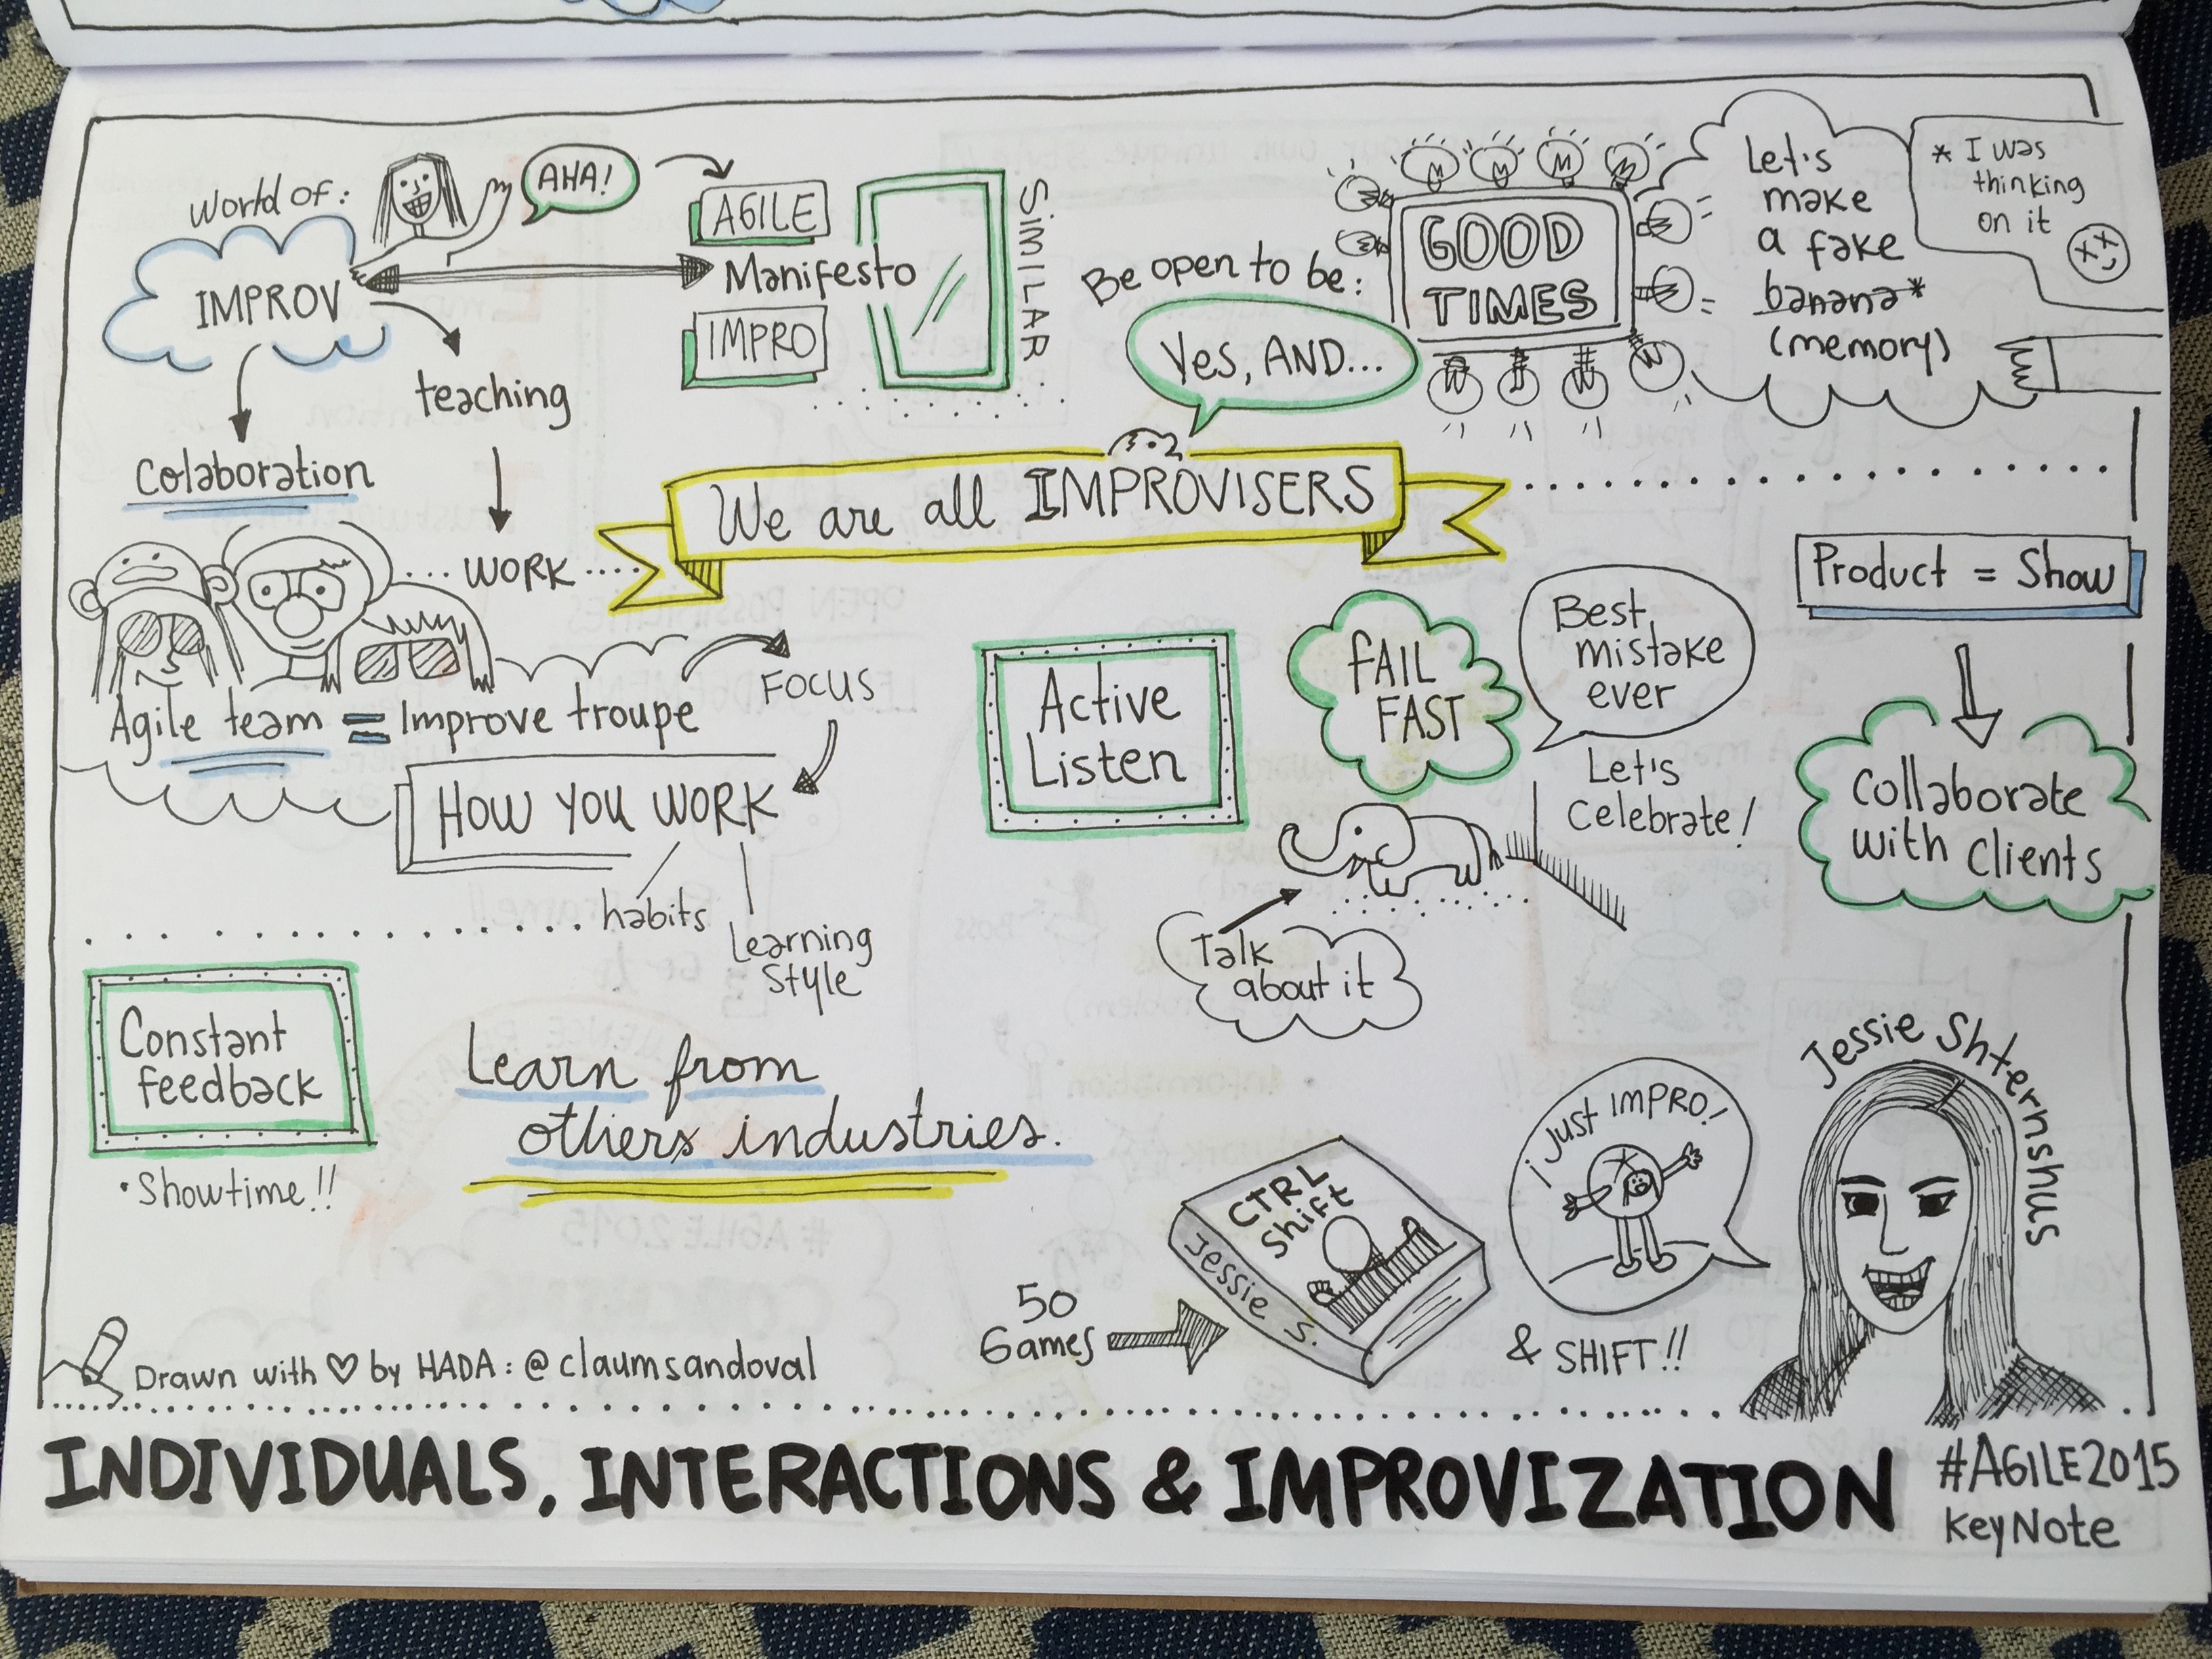 World of:
IMPROV
AHA!
AGILE
Manifesto
IMPRO
SiMiLAR
teaching
Colaboration
WORK
Be open to be:
Yes, AND...
GOOD
TIMES
Let's
make
a fake
banana*
(memory)
* I was
thinking
on it
We are all IMPROVISERS
Agile team = Improve troupe
FOCUS
HOW YOU WORK
habits
Learning
Style
Active
Listen
fAIL
FAST
Best
mistake
ever
Let's
Celebrate!
Talk
about it
Product = Show
Collaborate
with Clients
Constant
feedback
• Showtime!!
Learn from
others industries.
50
Games
CTRL
Shift
Jessie S.
¡Just IMPRO!
& SHIFT!!
Jessie Shternshus
Drawn with ♡ by HADA: @claumsandoval
INDIVIDUALS, INTERACTIONS & IMPROVIZATION
#AGILE2015
keyNote